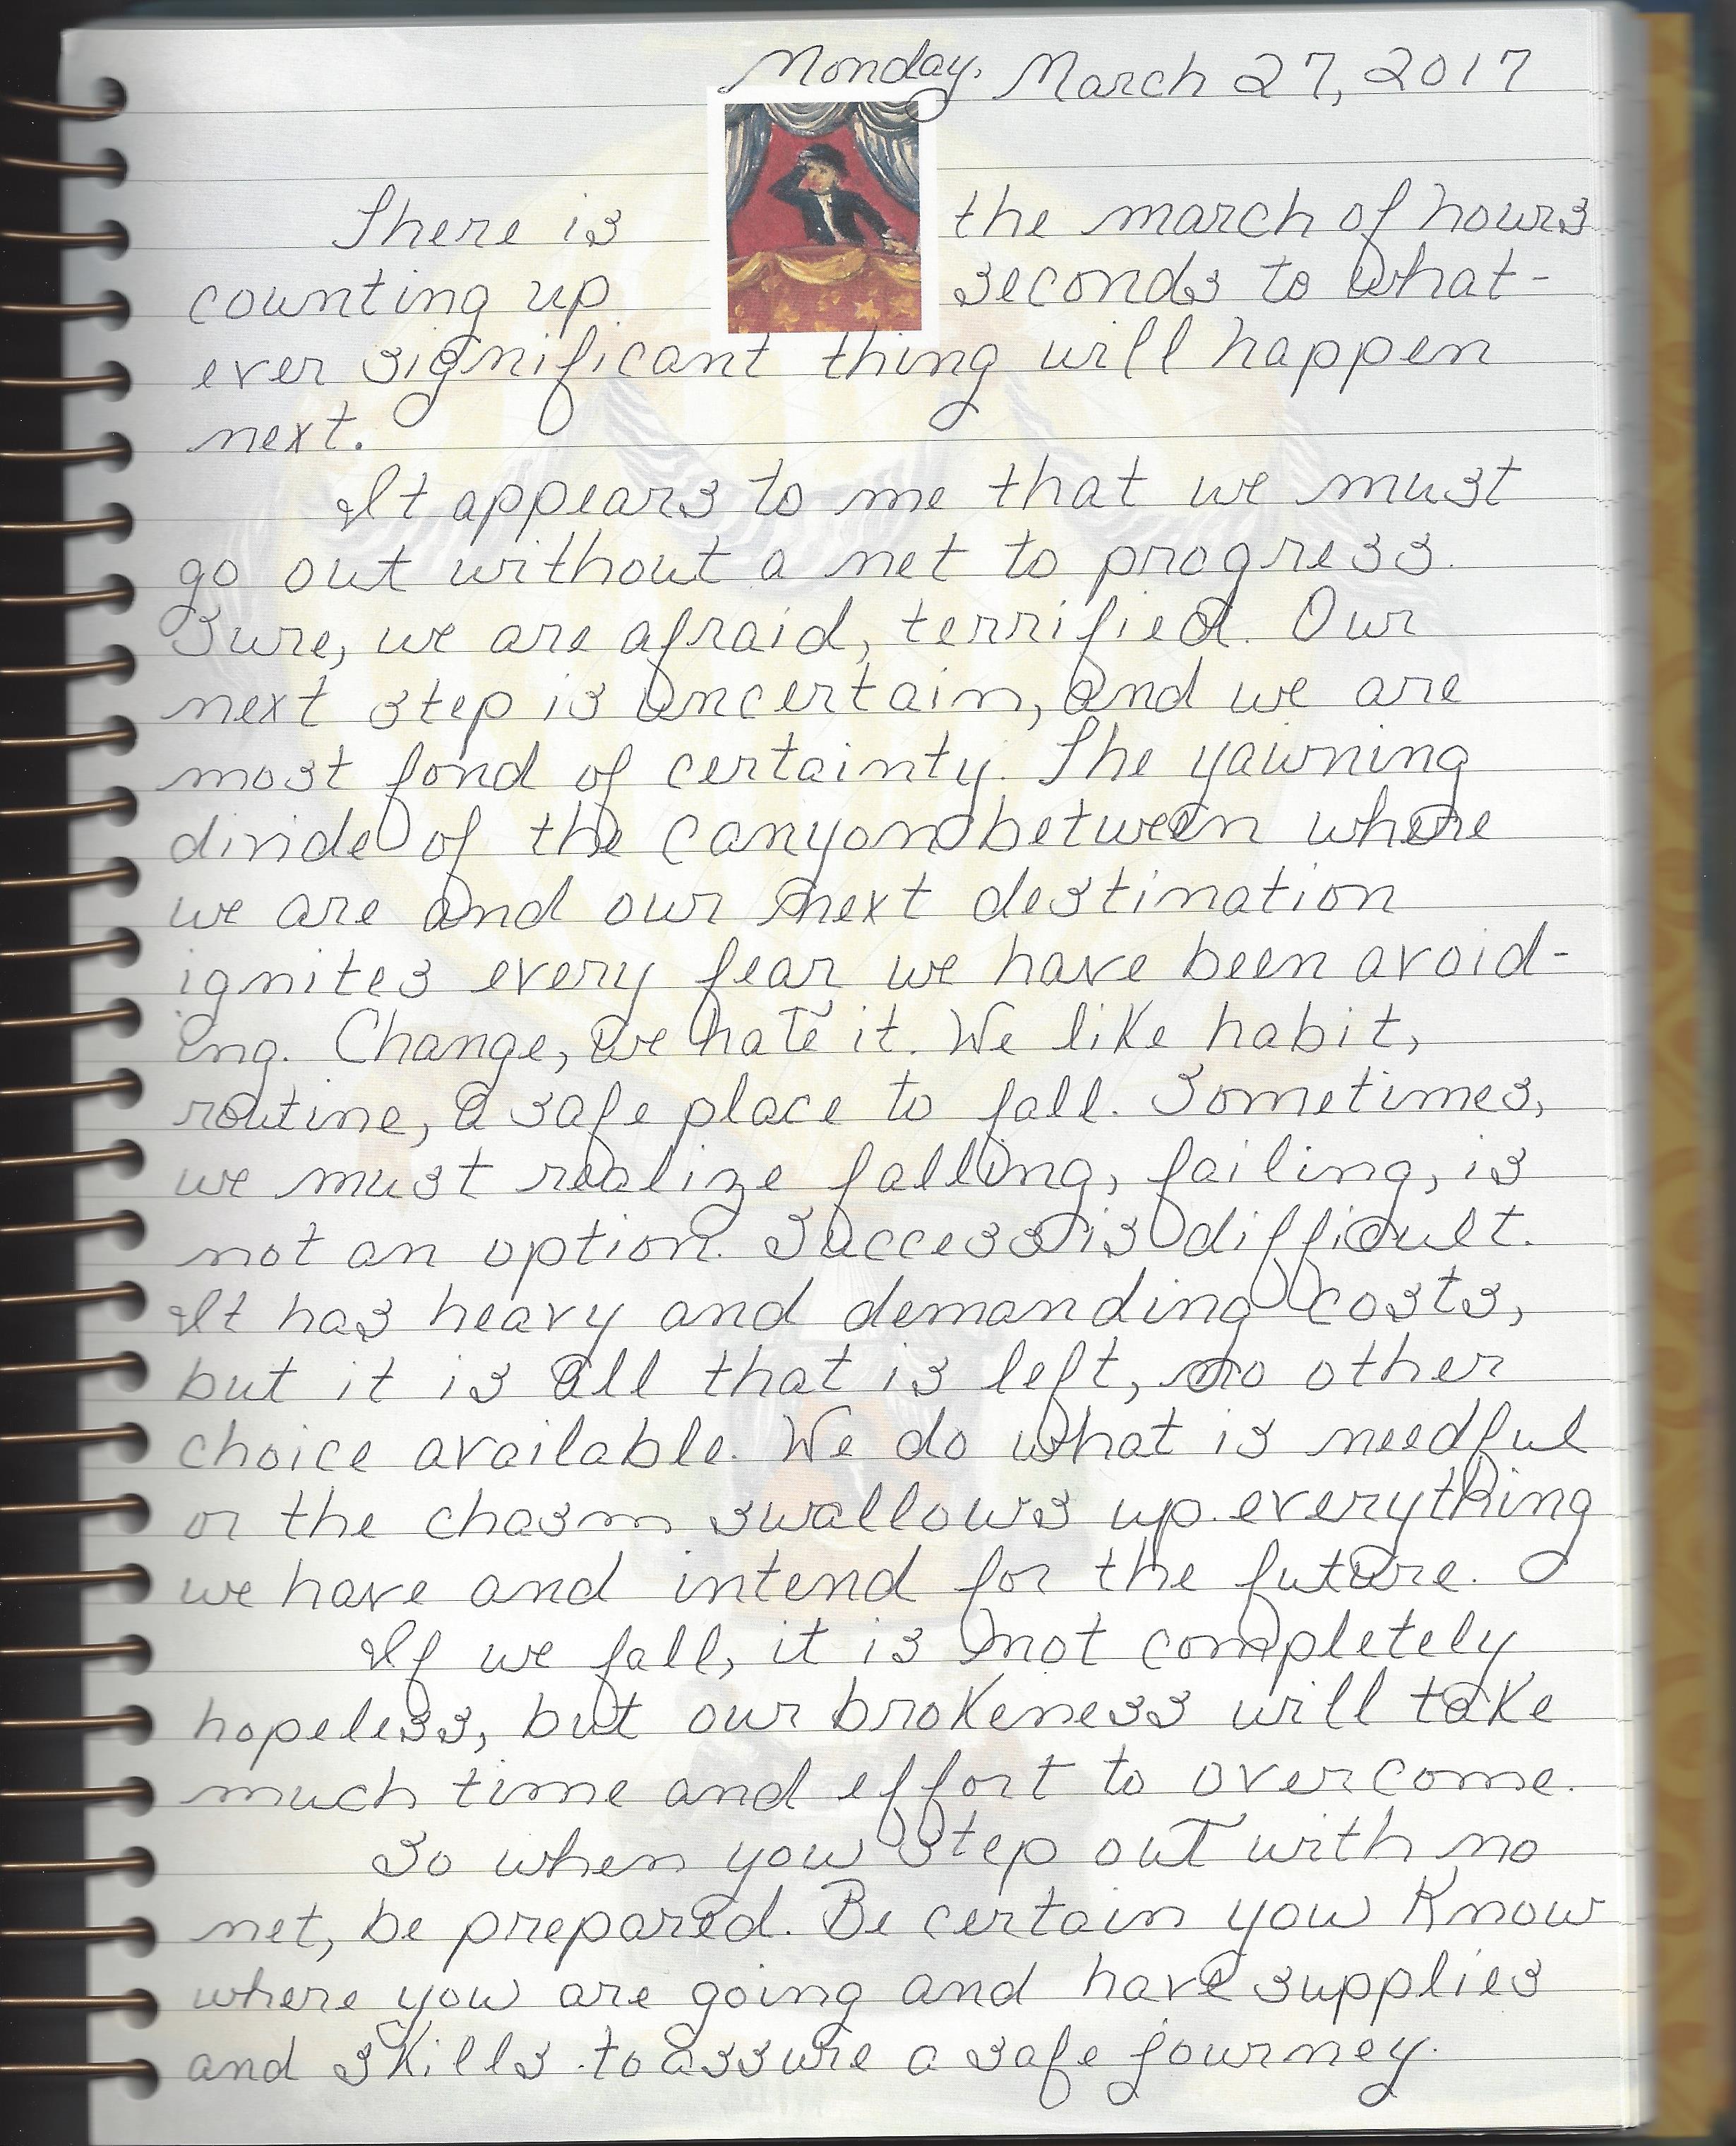 Monday, March 27, 2017
There is the march of hours
counting up seconds to what-
ever significant thing will happen
next.
It appears to me that we must
go out without a net to progress.
Sure, we are afraid, terrified. Our
next step is uncertain, and we are
most fond of certainty. The yawning
divide of the canyon between where
we are and our next destination
ignites every fear we have been avoid-
ing. Change, we hate it. We like habit,
routine, a safe place to fall. Sometimes,
we must realize falling, failing, is
not an option. Success is difficult.
It has heavy and demanding costs,
but it is all that is left, no other
choice available. We do what is needful
or the chasm swallows up everything
we have and intend for the future.
If we fall, it is not completely
hopeless, but our brokeness will take
much time and effort to overcome.
So when you step out with no
net, be prepared. Be certain you know
where you are going and have supplies
and skills to assure a safe journey.